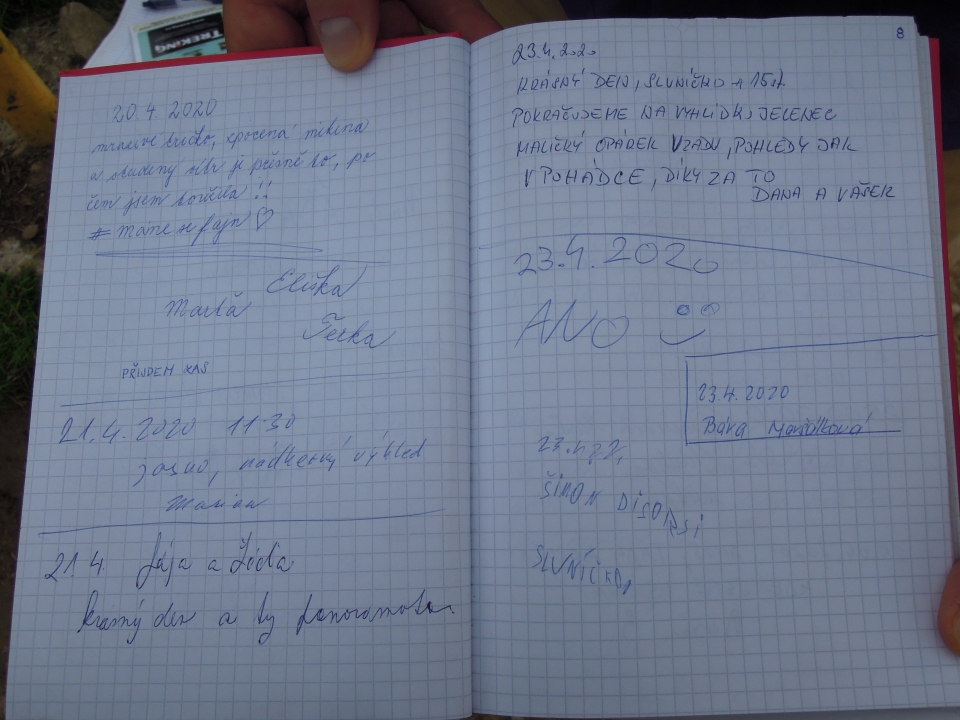 TREKING
20.4. 2020
mrazivé tričko, zpocená mikina
a studený vítr je přesně to, po
čem jsem toužila !!
# máme se fajn ♡
Eliška
Terka
PŘIJDEM ZAS
21.4. 2020 11:30
jasno, nádherný výhled
Marian
21.4. Jája a
krásný den a ty panoramata.
8
23.4.2020
KRÁSNÝ DEN, SLUNÍČKO + 15st.
POKRAČUJEME NA VYHLÍDKU JELENEC
MALIČKÝ OPÁREK VZADU, POHLEDY JAK
V POHÁDCE, DÍKY ZA TO
DANA A VAŠEK
23.4.2020
ANO
23.4.2020
Bára
ŠIMON
SLUNÍČKO